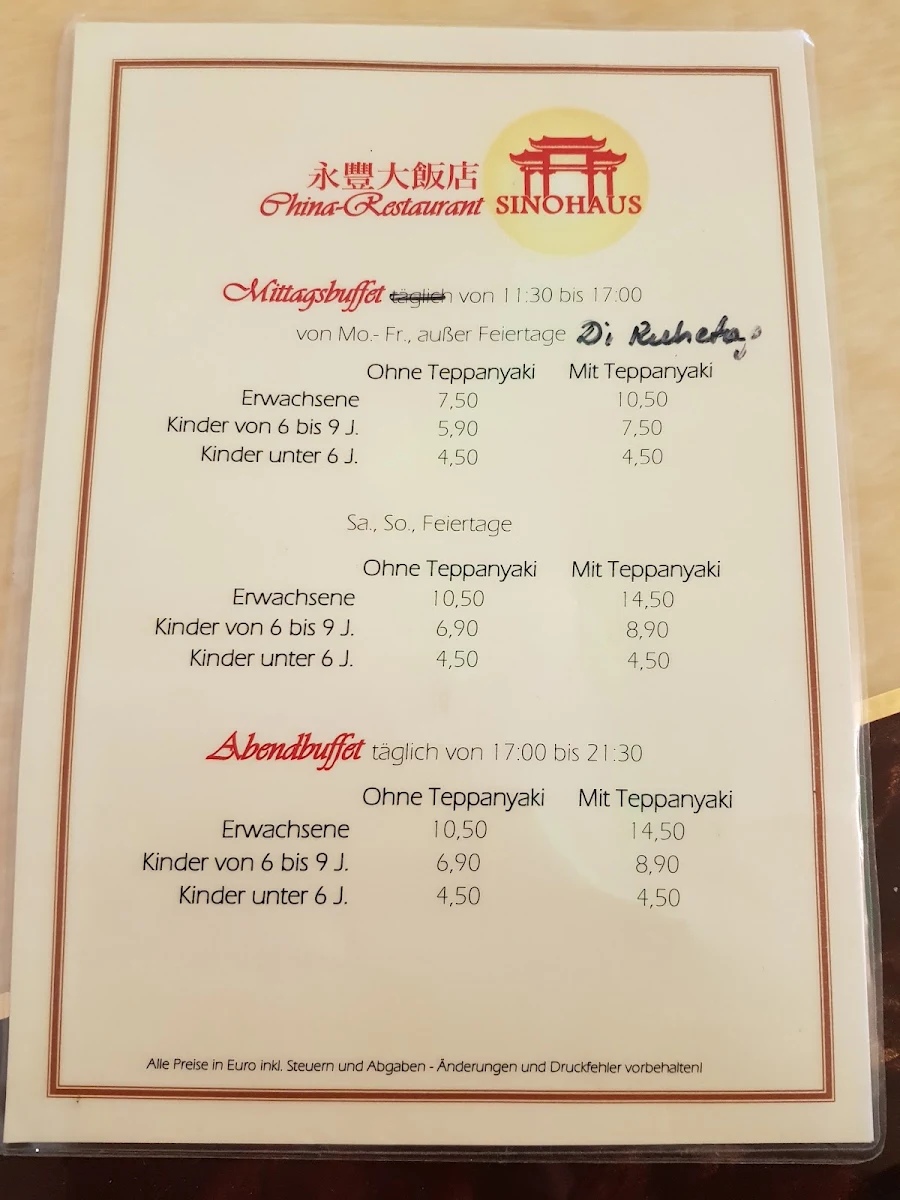 永豐大飯店
China-Restaurant SINOHAUS
Mittagsbuffet täglich von 11:30 bis 17:00
von Mo.- Fr., außer Feiertage Di Ruhetag
Ohne Teppanyaki Mit Teppanyaki
Erwachsene 7,50 10,50
Kinder von 6 bis 9 J. 5,90 7,50
Kinder unter 6 J. 4,50 4,50
Sa., So., Feiertage
Ohne Teppanyaki Mit Teppanyaki
Erwachsene 10,50 14,50
Kinder von 6 bis 9 J. 6,90 8,90
Kinder unter 6 J. 4,50 4,50
Abendbuffet täglich von 17:00 bis 21:30
Ohne Teppanyaki Mit Teppanyaki
Erwachsene 10,50 14,50
Kinder von 6 bis 9 J. 6,90 8,90
Kinder unter 6 J. 4,50 4,50
Alle Preise in Euro inkl. Steuern und Abgaben - Änderungen und Druckfehler vorbehalten!